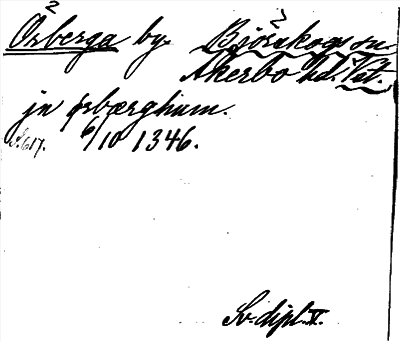 Orberga by. Björskogs sn.
Åkerbo hd. Väst.
jn ørbærghum.
S. 617. 6/10 1346.
Sv. dipl. V.